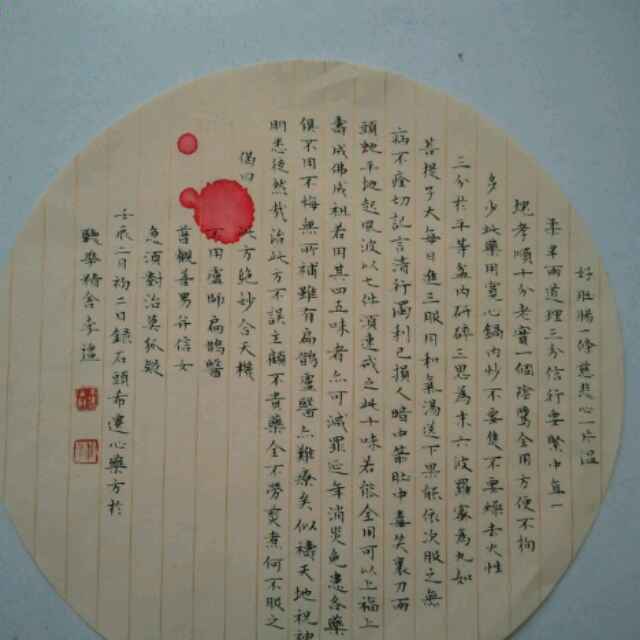 好肚腸一條慈悲心一片溫
柔半兩道理三分信行要緊中直一
塊孝順十分老實一個陰騭全用方便不拘
多少此藥用寬心鍋內炒不要焦不要燥去火性
三分於平等盆內研碎三思為末六波羅蜜為丸如
菩提子大每日進三服用和氣湯送下果能依次服之無
病不瘥切記言清行濁利己損人暗中箭肚中毒笑裏刀兩
頭蛇平地起風波以七件須速戒之此十味若能全用可以上福上
壽成佛成祖若用其四五味者亦可滅罪延年消災免患各藥
俱不用不悔無所補雖有扁鵲盧醫亦難療矣似禱天地祝神
明悉徒然哉治此方不誤主顧不費藥金不勞煎煮何不服之
偈曰 方絕妙合天機
不用盧師扁鵲醫
普觀善男并信女
急須對治莫狐疑
壬辰二月初二日錄石頭希遷心藥方於